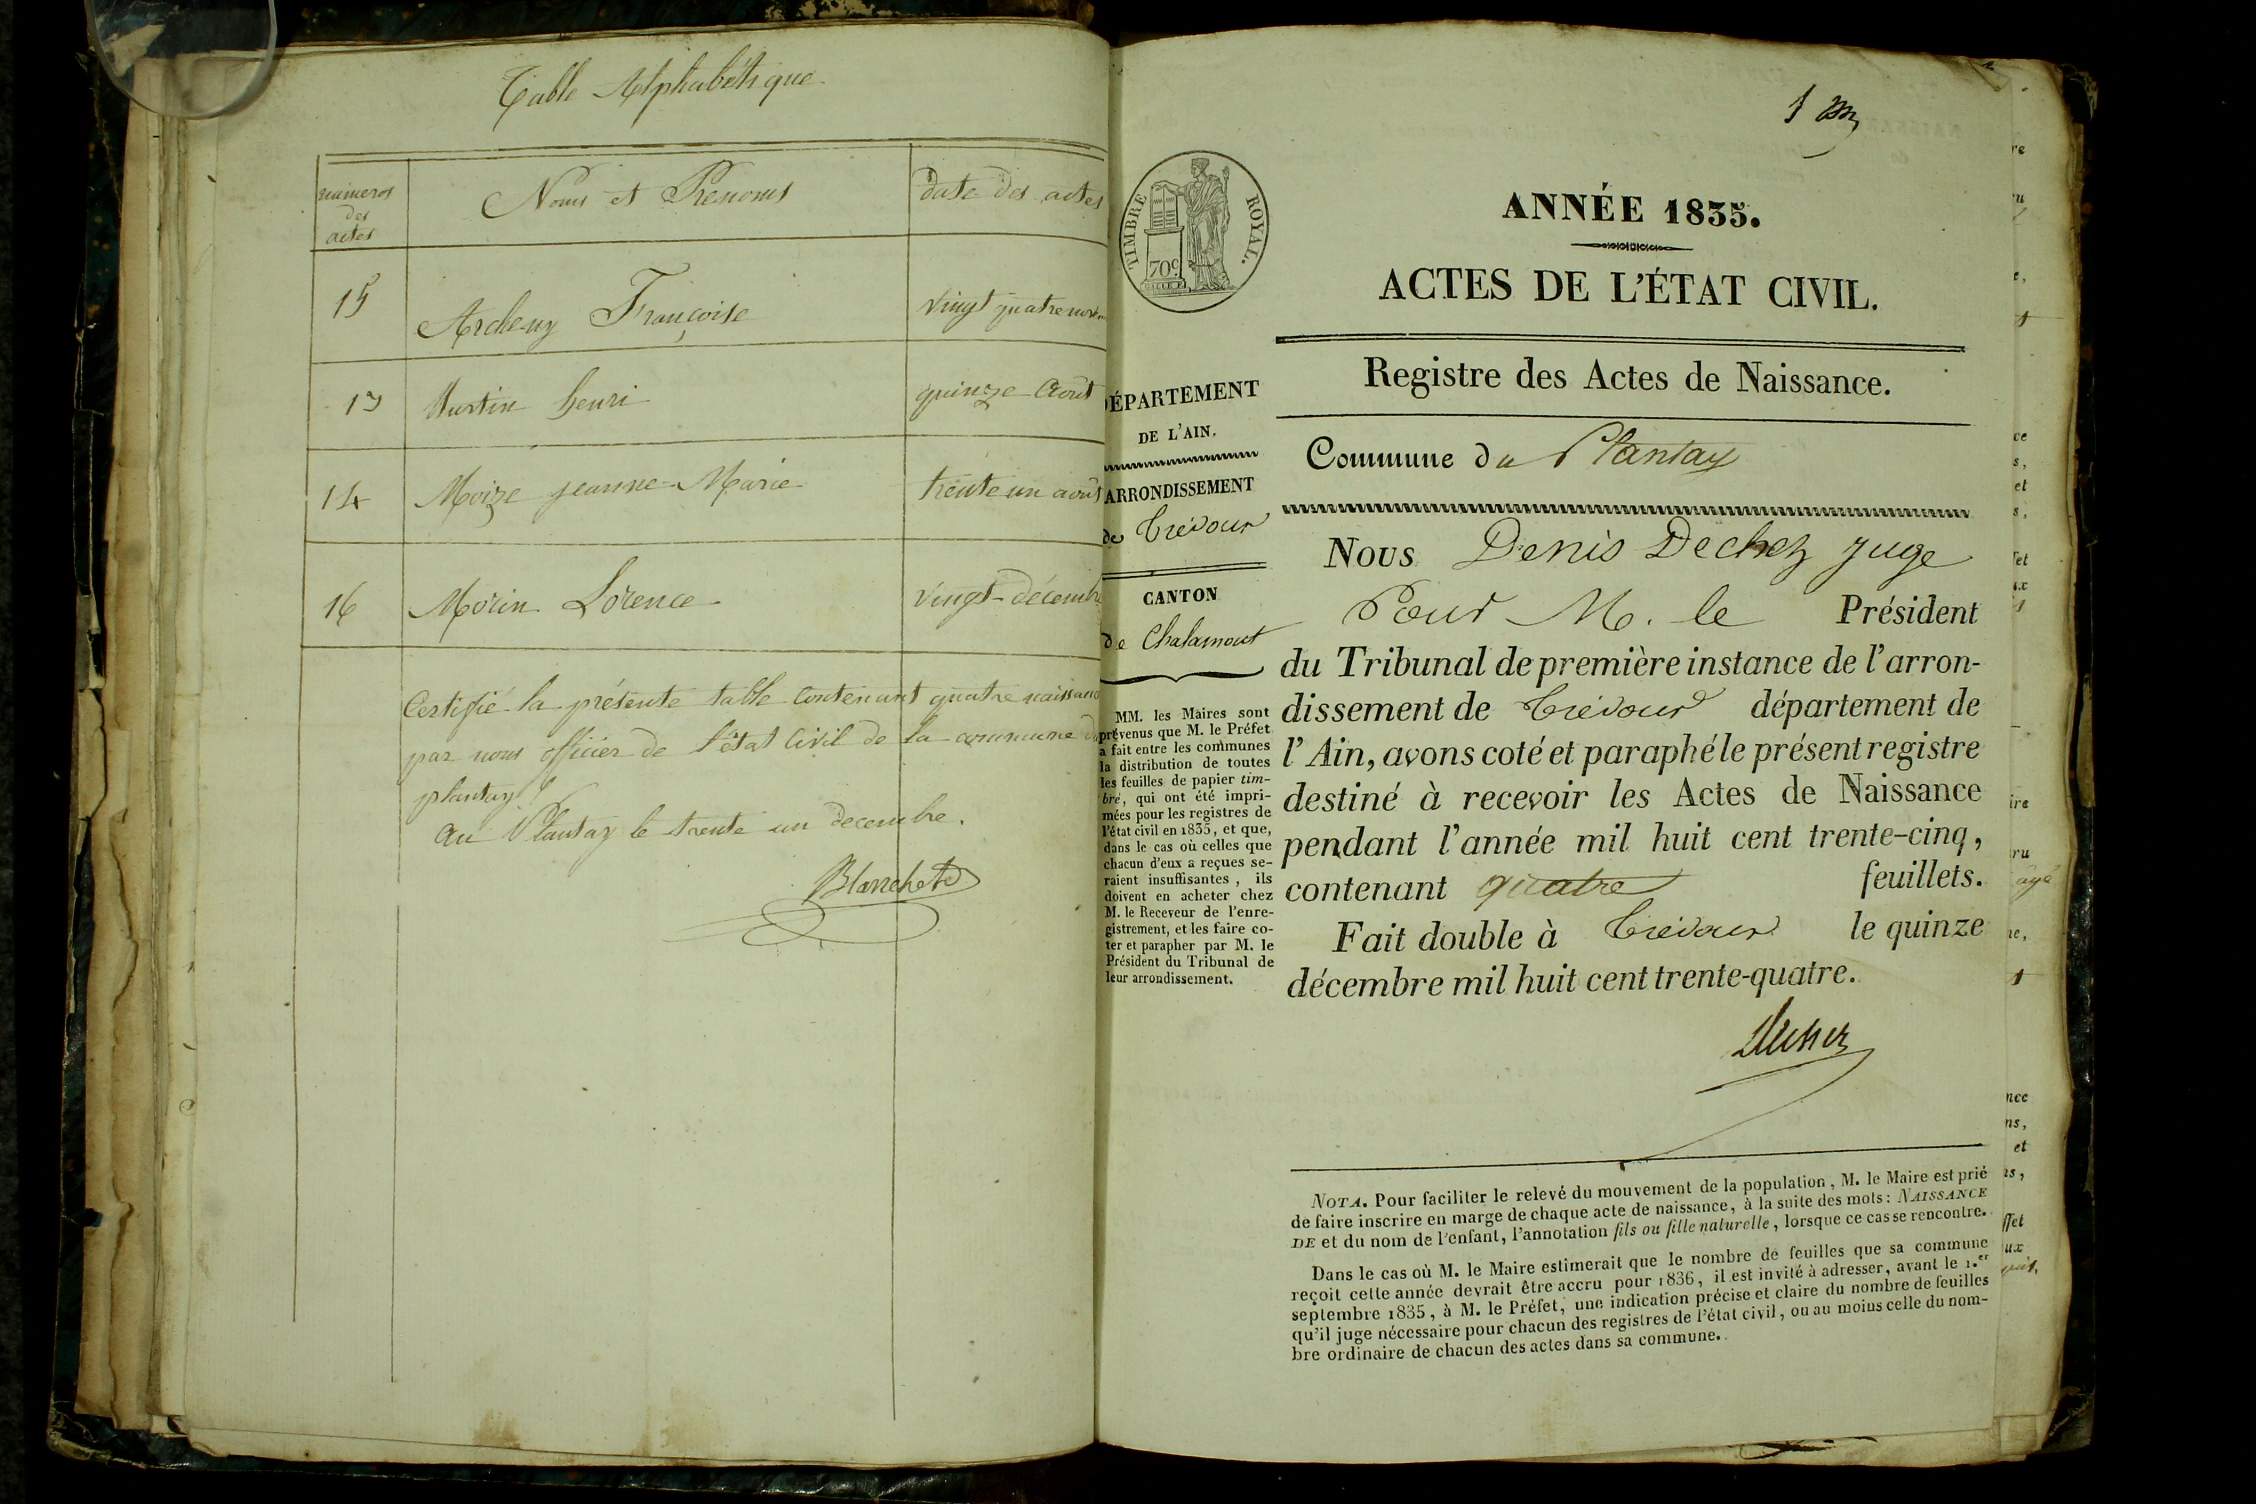 Table Alphabétique
numeros
des
actes
Noms et Prenoms
date des actes
15
Archeny Françoise
vingt quatre
13
Martin henri
quinze Aout
14
Moize jeanne-Marie
trente un août
16
Morin Lorence
vingt-décembre
Certifié la présente table contenant quatre naissanc
par nous officier de l'état Civil de la commune du
plantay
au Plantay le trente un decembre.
Blanchet
1
TIMBRE ROYAL.
70 c
ANNÉE 1835.
ACTES DE L'ÉTAT CIVIL.
Registre des Actes de Naissance.
DÉPARTEMENT
DE L'AIN.
ARRONDISSEMENT
de Trévoux
CANTON
de Chalamont
MM. les Maires sont
prévenus que M. le Préfet
a fait entre les communes
la distribution de toutes
les feuilles de papier tim-
bré, qui ont été impri-
mées pour les registres de
l'état civil en 1835, et que,
dans le cas où celles que
chacun d'eux a reçues se-
raient insuffisantes, ils
doivent en acheter chez
M. le Receveur de l'enre-
gistrement, et les faire co-
ter et parapher par M. le
Président du Tribunal de
leur arrondissement.
Commune du Plantay
Nous Denis Dechez juge
Pour M. le Président
du Tribunal de première instance de l'arron-
dissement de Trévoux département de
l'Ain, avons coté et paraphé le présent registre
destiné à recevoir les Actes de Naissance
pendant l'année mil huit cent trente-cinq,
contenant quatre feuillets.
Fait double à Trévoux le quinze
décembre mil huit cent trente-quatre.
NOTA. Pour faciliter le relevé du mouvement de la population, M. le Maire est prié
de faire inscrire en marge de chaque acte de naissance, à la suite des mots: NAISSANCE
DE et du nom de l'enfant, l'annotation fils ou fille naturelle, lorsque ce cas se rencontre.
Dans le cas où M. le Maire estimerait que le nombre de feuilles que sa commune
reçoit cette année devrait être accru pour 1836, il est invité à adresser, avant le 1.er
septembre 1835, à M. le Préfet, une indication précise et claire du nombre de feuilles
qu'il juge nécessaire pour chacun des registres de l'état civil, ou au moins celle du nom-
bre ordinaire de chacun des actes dans sa commune.